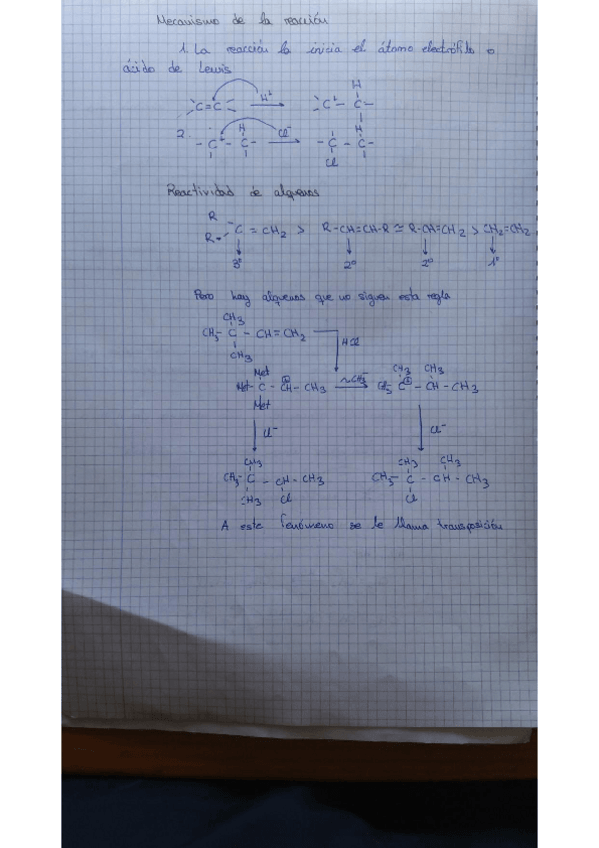 Mecanismo de la reacción
1. La reacción la inicia el átomo electrófilo o
ácido de Lewis
H
C=C H⁺ C⁺ - C -
2. - C⁺ - C - Cl⁻ - C - C -
H H
Cl
Reactividad de alquenos
R
R C = CH₂ > R-CH=CH-R ≅ R-CH=CH₂ > CH₂=CH₂
3º 2º 2º 1º
Pero hay alquenos que no siguen esta regla
CH₃
CH₃- C - CH=CH₂
CH₃
HCl
Met CH₃ CH₃
Met- C - CH - CH₃ ~CH₃⁻ CH₃ C⊕ - CH - CH₃
Met
Cl⁻ Cl⁻
CH₃ CH₃ CH₃
CH₃- C - CH - CH₃ CH₃- C - CH - CH₃
CH₃ Cl Cl
A este fenómeno se le llama transposición